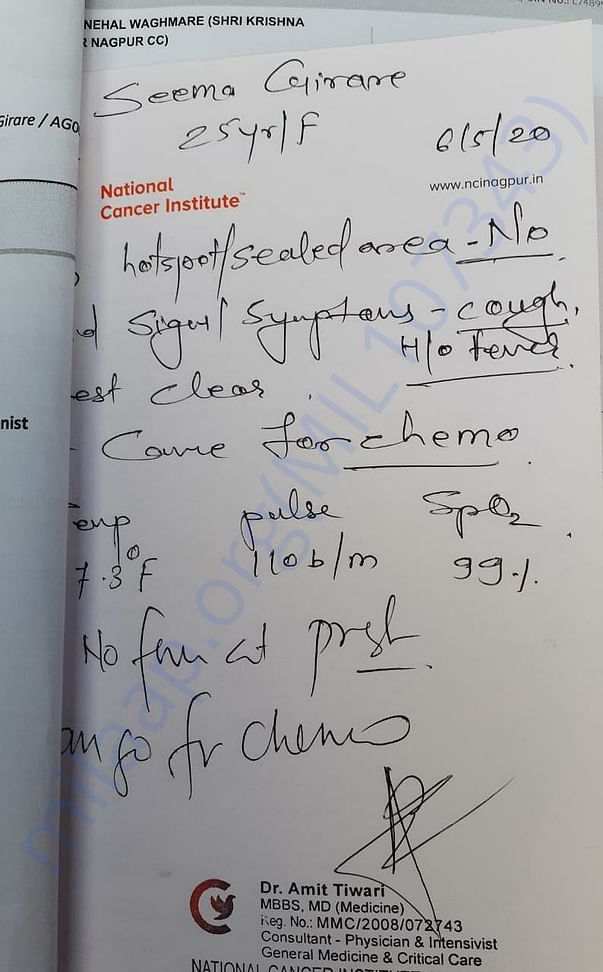 NEHAL WAGHMARE (SHRI KRISHNA
R NAGPUR CC)
Girare / AGO
Seema Girare
25yr/F
6/5/20
National
Cancer Institute™
www.ncinagpur.in
hotspot/sealed area - No
d Sign/Symptoms - cough,
H/o Fever
est clear.
nist
- Came for chemo
emp pulse SpO2
7.3°F 110b/m 99%
No fever at
an go for chemo
Dr. Amit Tiwari
MBBS, MD (Medicine)
Reg. No.: MMC/2008/072743
Consultant - Physician & Intensivist
General Medicine & Critical Care
NATIONAL CANCER
milaap.org(MIL 107343)